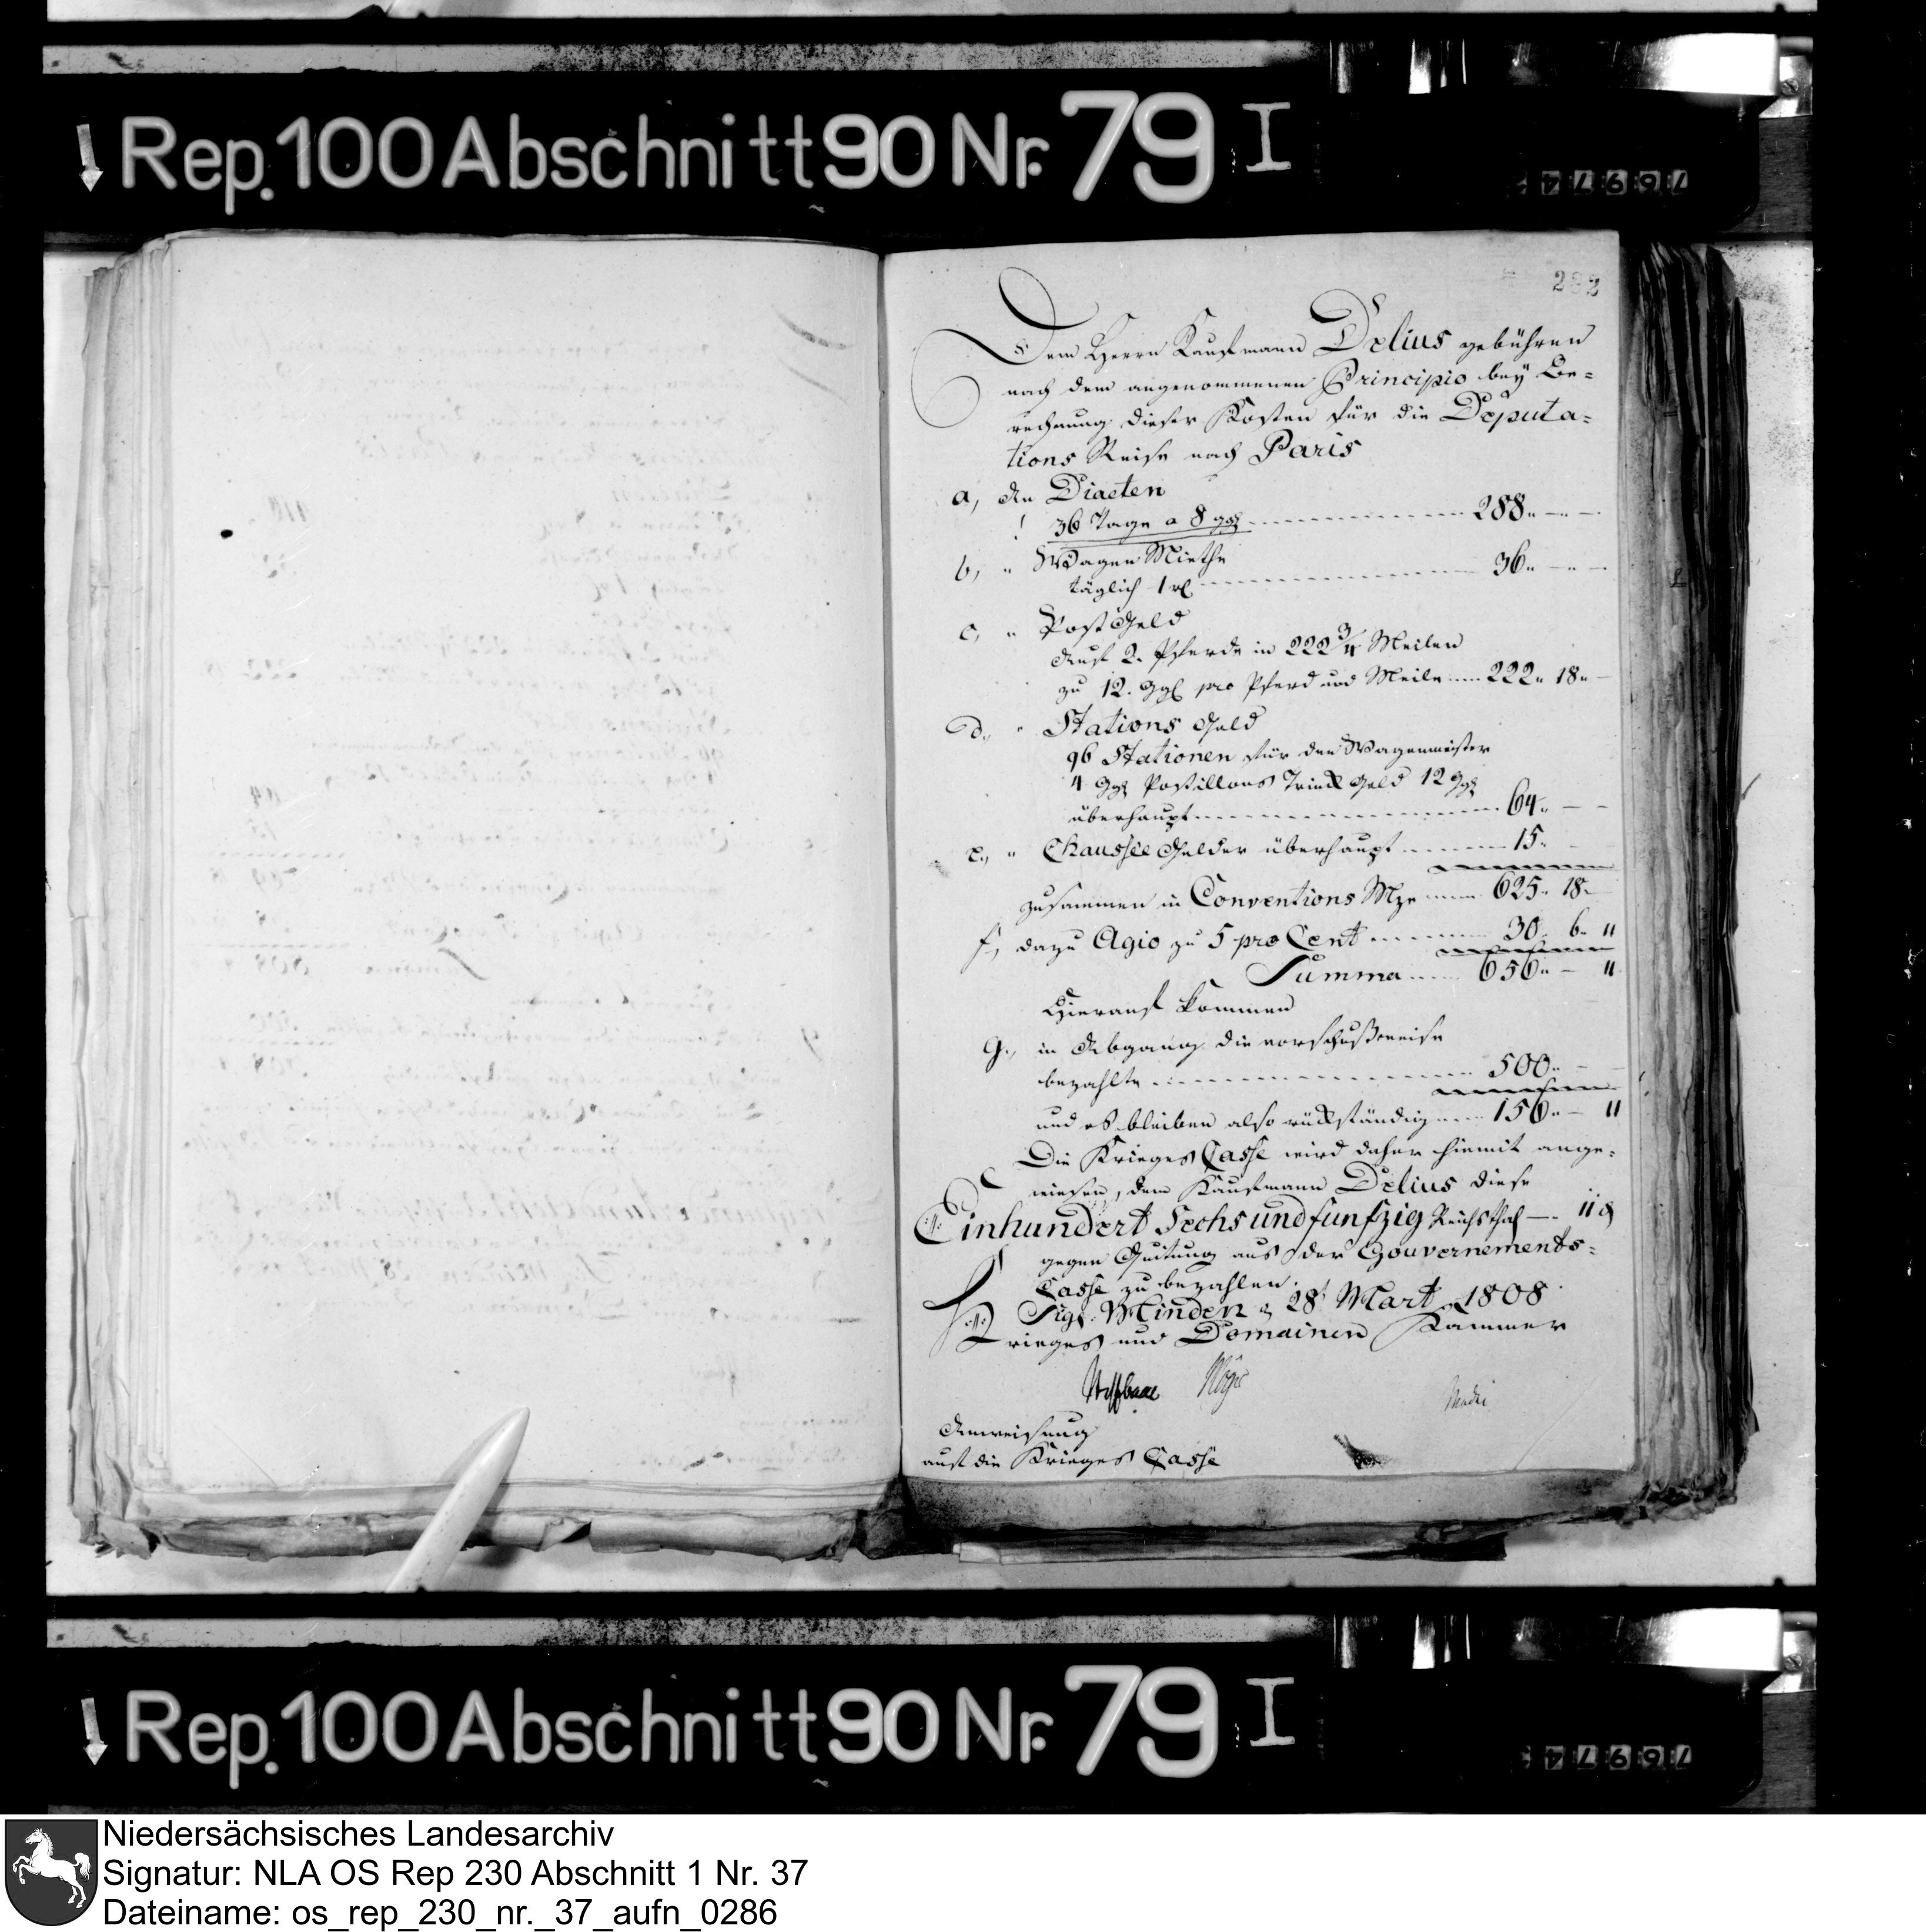 Rep. 100 Abschnitt 90 Nr. 79 I
282
Dem Herrn Kaufmann Delius gebühren
nach dem angenommenen Principio bey Be-
rechnung dieser Kosten für die Deputa-
tions Reise nach Paris
a, An Diaeten
36 Tage a 8 288 " — " —
b, " Wagen Miethe
täglich 1 rl 36 " — " —
c, " Post Geld
Auf 2. Pferde in 222 3/4 Meilen
zu 12. ggl pro Pferd und Meile 222 " 18 " —
d., " Stations Geld
96 Stationen für den Wagenmeister
4 Ggl Postillons Trinck Geld 12 Ggl
überhaupt 64 " — —
e., " Chaussée Gelder überhaupt 15 "
zusammen in Conventions Mze 625 " 18 " —
f, dazu Agio zu 5 pro Cent 30 " 6 " "
Summa 656 " — "
Hierauf kommen
g., in Abgang die vorschußweise
bezahlte 500 " — —
und es bleiben also rückständig 156 " — "
Die Krieges Casse wird daher hiemit ange-
wiesen, dem Kaufmann Delius diese
Einhundert Sechs und funfzig Reichsthal —
gegen Quitung aus der Gouvernements-
Casse zu bezahlen.
Sigl. Minden d. 28t Mart. 1808
Krieges und Domainen Kammer
Anweisung
auf die Krieges Casse
Rep. 100 Abschnitt 90 Nr. 79 I
Niedersächsisches Landesarchiv
Signatur: NLA OS Rep 230 Abschnitt 1 Nr. 37
Dateiname: os_rep_230_nr._37_aufn_0286